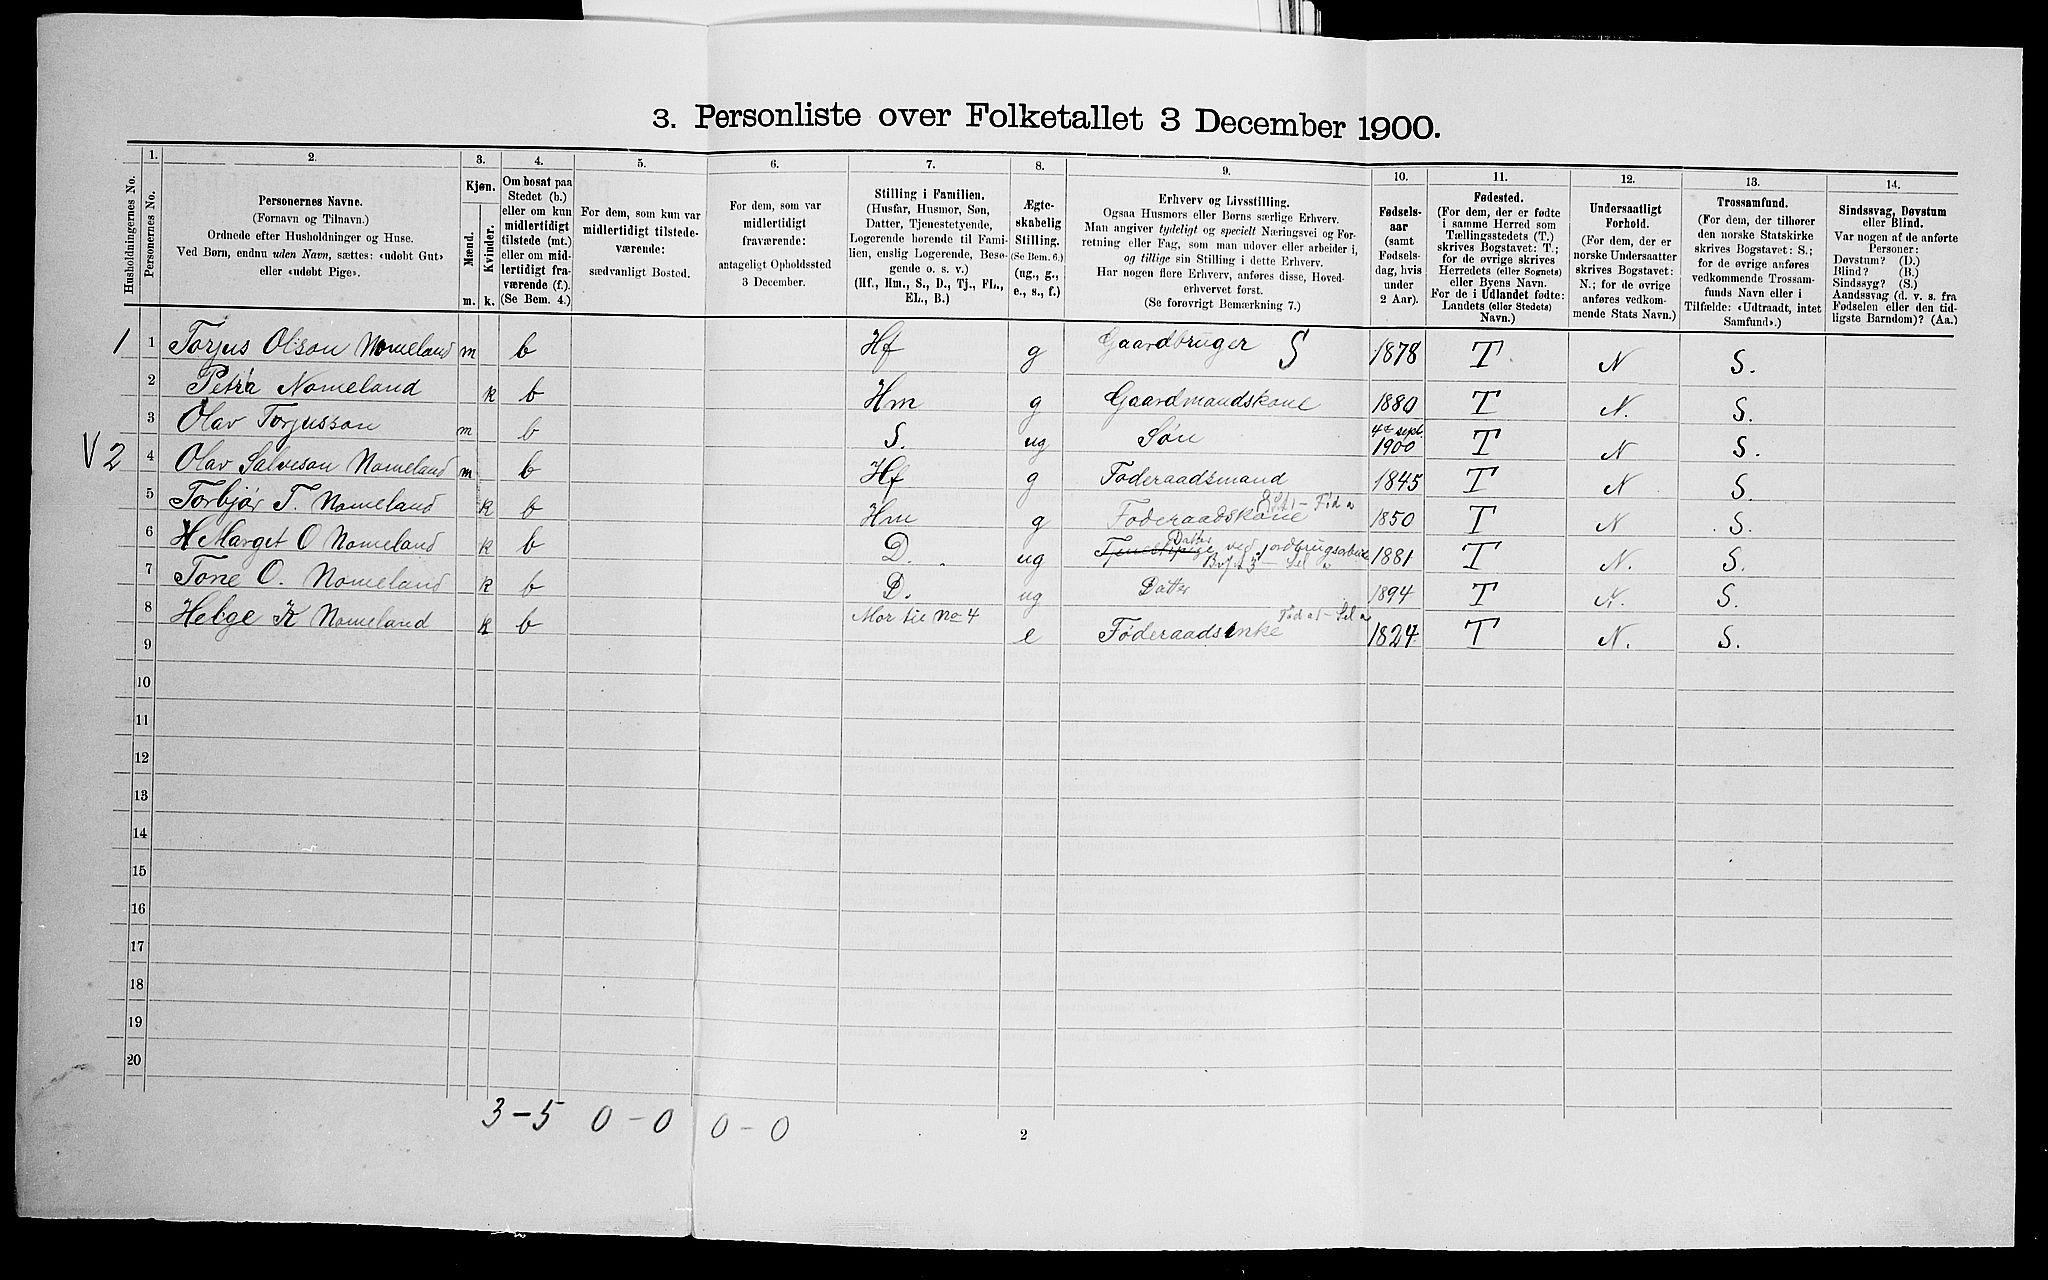 3. Personliste over Folketallet 3 December 1900.
Husholdningernes No.
1.
Personernes No.
2.
Personernes Navne.
(Fornavn og Tilnavn.)
Ordnede efter Husholdninger og Huse.
Ved Børn, endnu uden Navn, sættes: «udøbt Gut»
eller «udøbt Pige».
3.
Kjøn.
Mænd.
Kvinder.
m. k.
4.
Om bosat paa
Stedet (b.)
eller om kun
midlertidigt
tilstede (mt.)
eller om mid-
lertidigt fra-
værende (f.).
(Se Bem. 4.)
5.
For dem, som kun var
midlertidigt tilstede-
værende:
sædvanligt Bosted.
6.
For dem, som var
midlertidigt
fraværende:
antageligt Opholdssted
3 December.
7.
Stilling i Familien.
(Husfar, Husmor, Søn,
Datter, Tjenestetyende,
Logerende hørende til Fami-
lien, enslig Logerende, Besø-
gende o. s. v.)
(Hf., Hm., S., D., Tj., FL.,
EL., B.)
8.
Ægte-
skabelig
Stilling.
(Se Bem. 6.)
(ug., g.,
e., s., f.)
9.
Erhverv og Livsstilling.
Ogsaa Husmors eller Børns særlige Erhverv.
Man angiver tydeligt og specielt Næringsvei og For-
retning eller Fag, som man udover eller arbeider i,
og tillige sin Stilling i dette Erhverv.
Har nogen flere Erhverv, anføres disse, Hoved-
erhvervet først.
(Se forøvrigt Bemærkning 7.)
10.
Fødsels-
aar
(samt
Fødsels-
dag, hvis
under
2 Aar).
11.
Fødested.
(For dem, der er fødte
i samme Herred som
Tællingsstedets (T.)
skrives Bogstavet: T.;
for de øvrige skrives
Herredets (eller Sognets)
eller Byens Navn.
For de i Udlandet fødte:
Landets (eller Stedets)
Navn.)
12.
Undersaatligt
Forhold.
(For dem, der er
norske Undersaatter
skrives Bogstavet:
N.; for de øvrige
anføres vedkom-
mende Stats Navn.)
13.
Trossamfund.
(For dem, der tilhører
den norske Statskirke
skrives Bogstavet: S.;
for de øvrige anføres
vedkommende Trossam-
funds Navn eller i
Tilfælde: «Udtraadt, intet
Samfund».)
14.
Sindssvag, Døvstum
eller Blind.
Var nogen af de anførte
Personer:
Døvstum? (D.)
Blind? (B.)
Sindssyg? (S.)
Aandssvag (d. v. s. fra
Fødselen eller den tid-
ligste Barndom)? (Aa.)
1 1 Torjus Olson Nomeland m b Hf g Gaardbruger S 1878 T N S.
2 Petra Nomeland k b Hm g Gaardmandskone 1880 T N. S.
3 Olav Torjusson m b S. ug Søn 4de sept. 1900 T N S.
V 2 4 Olav Salveson Nomeland m b Hf g Føderaadsmand 1845 T N S.
5 Torbjør T. Nomeland k b Hm g Føderaadskone 1850 T N S.
6 Marget O Nomeland k b D. ug Tjenestpige Datter ved Jordbrugsarbeide 1881 T N. S.
7 Tone O. Nomeland k b D. ug Datter 1894 T N. S.
8 Helge K Nomeland k b Mor til No 4 e Føderaadsenke 1824 T N. S.
9
10
11
12
13
14
15
16
17
18
19
20
3-5 0-0 0-0
2